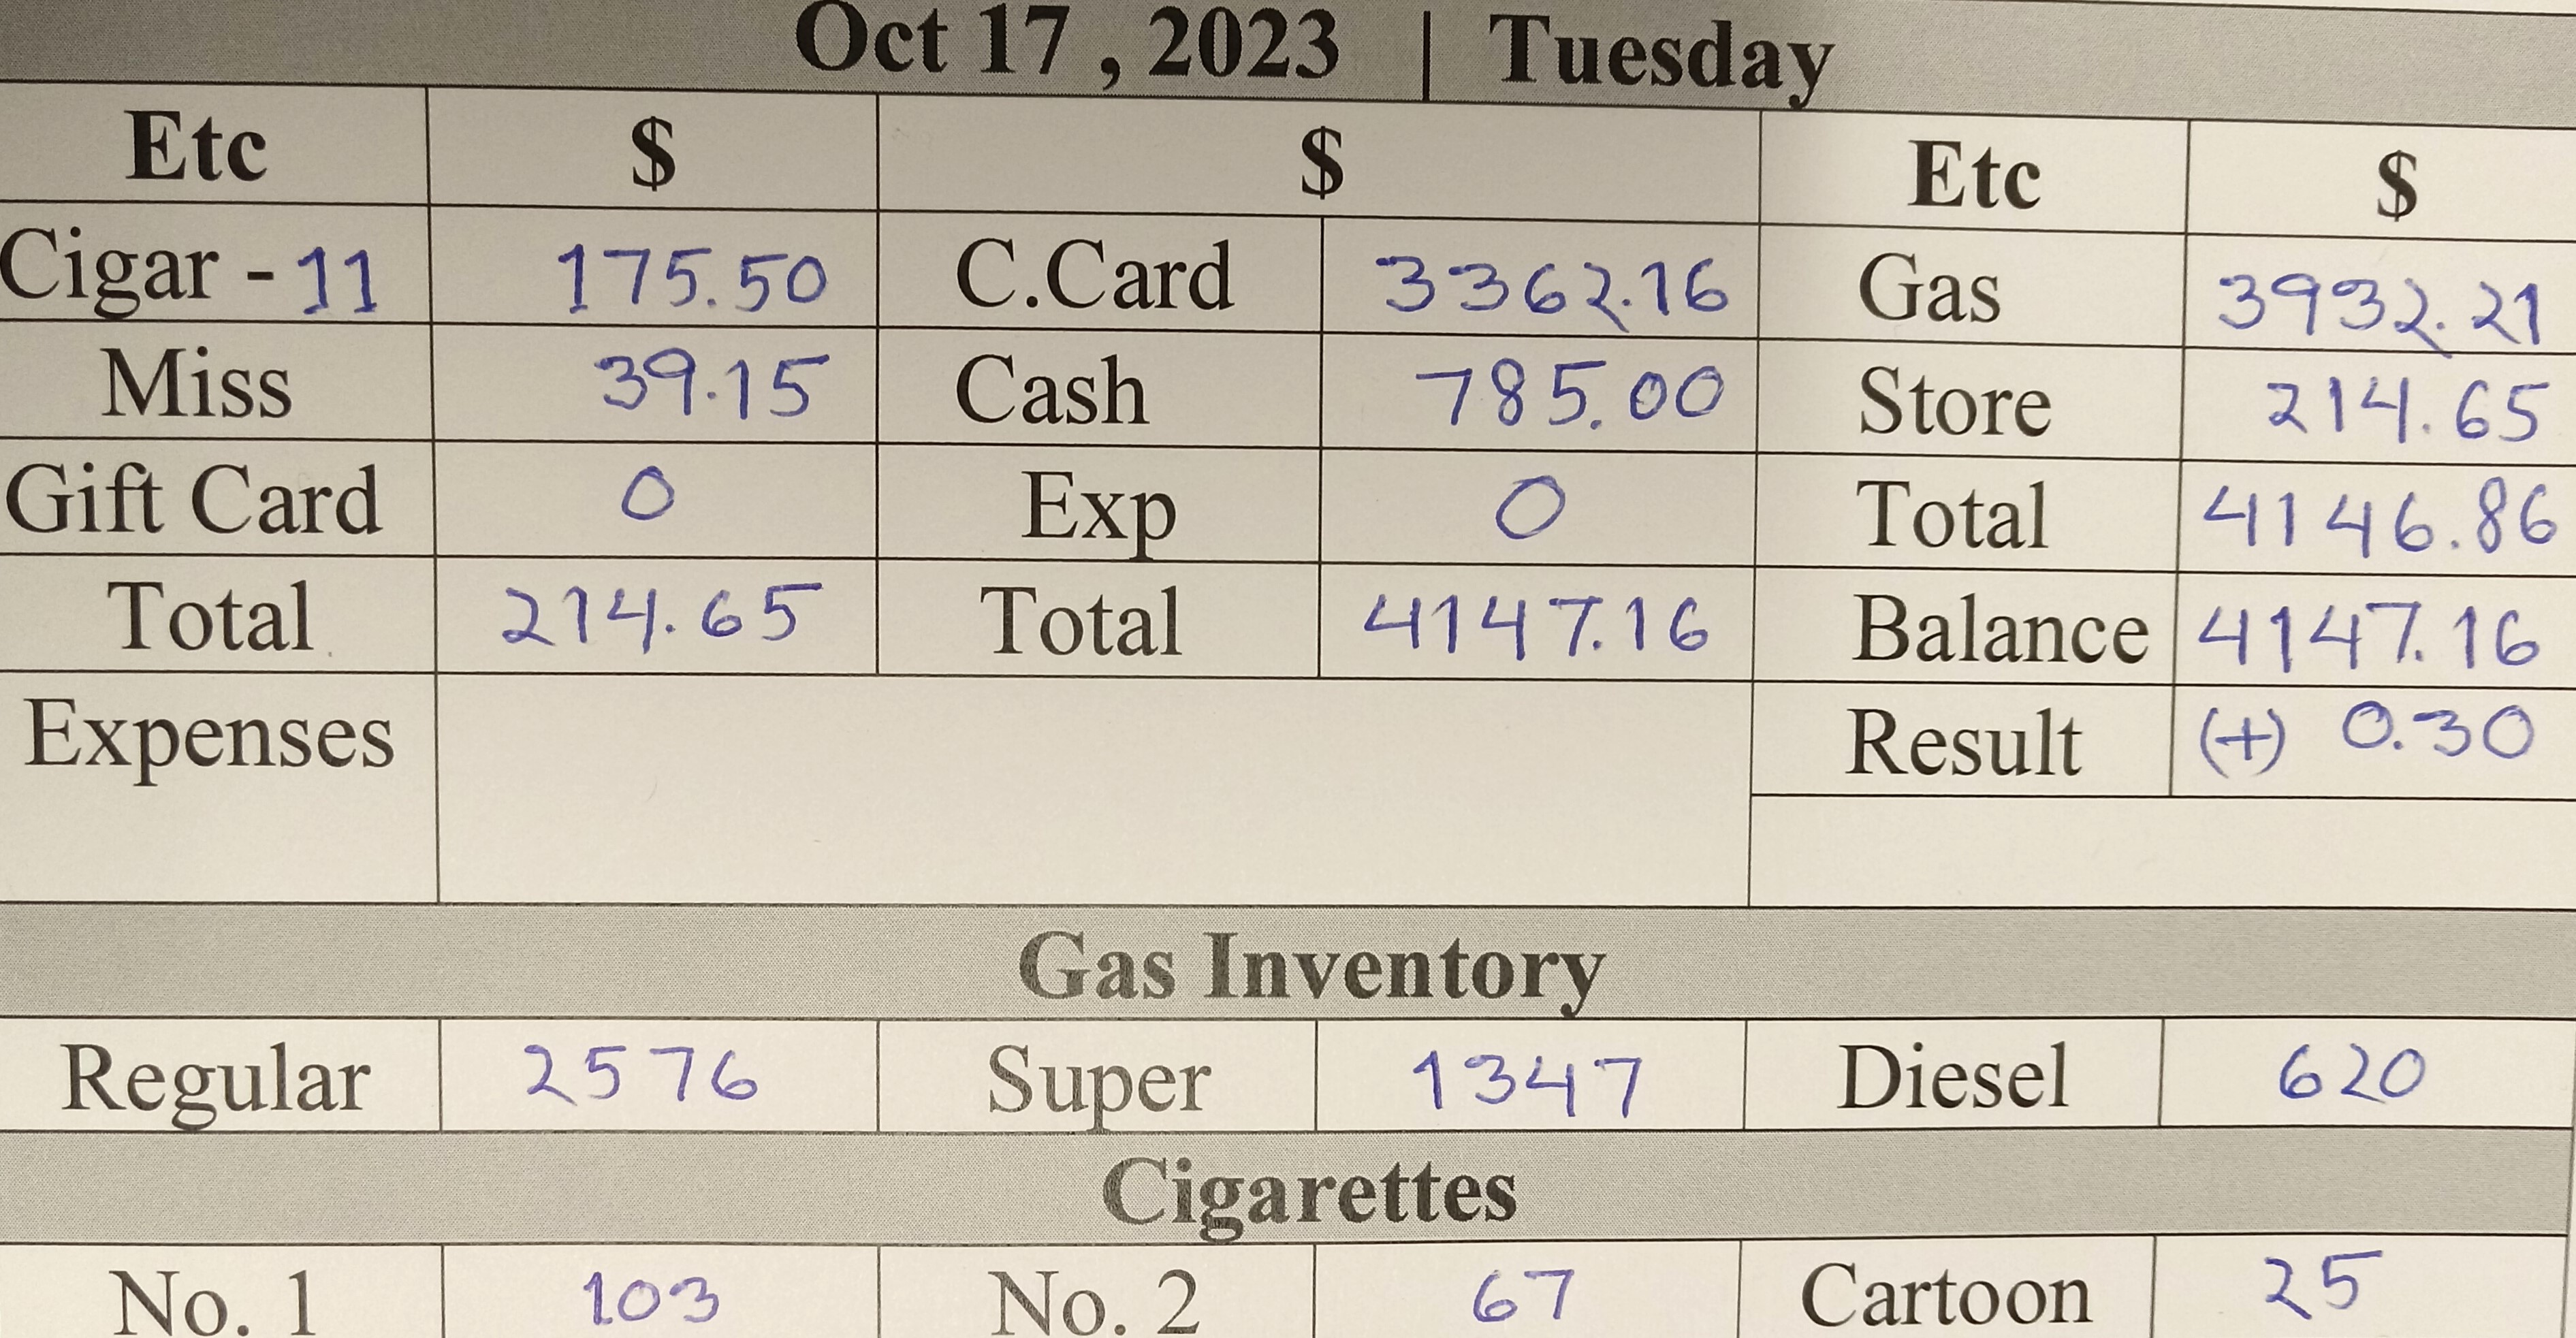 Oct 17 , 2023 | Tuesday
Etc $ $ Etc $
Cigar - 11 175.50 C.Card 3362.16 Gas 3932.21
Miss 39.15 Cash 785.00 Store 214.65
Gift Card 0 Exp 0 Total 4146.86
Total 214.65 Total 4147.16 Balance 4147.16
Expenses Result (+) 0.30
Gas Inventory
Regular 2576 Super 1347 Diesel 620
Cigarettes
No. 1 103 No. 2 67 Cartoon 25